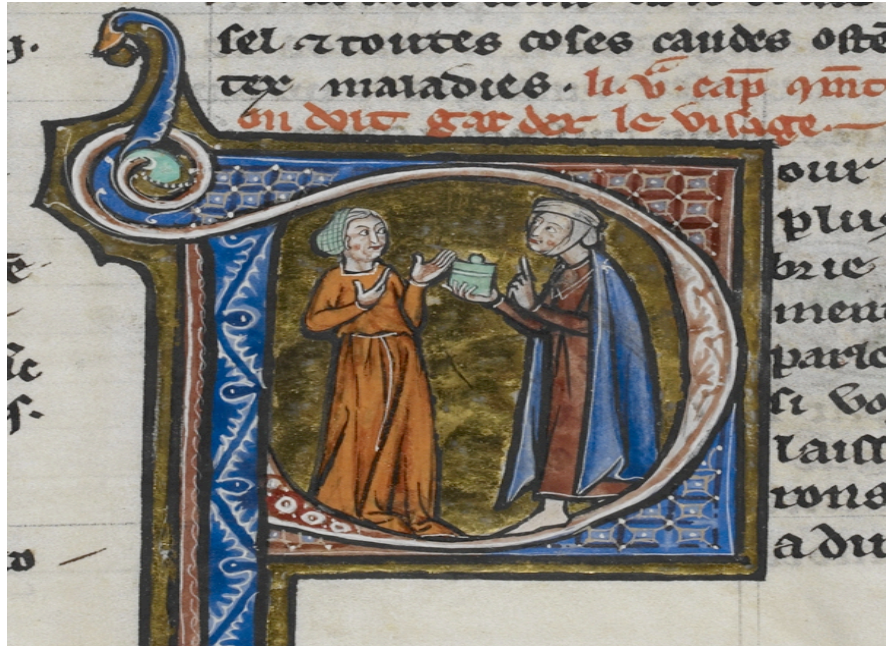 sel ⁊ toutes coses caudes ostē
tex maladies. li. v. cap̄
on doit garder le visage.
our
plus
brie
men
parle
si vo
laiss
rons
a du